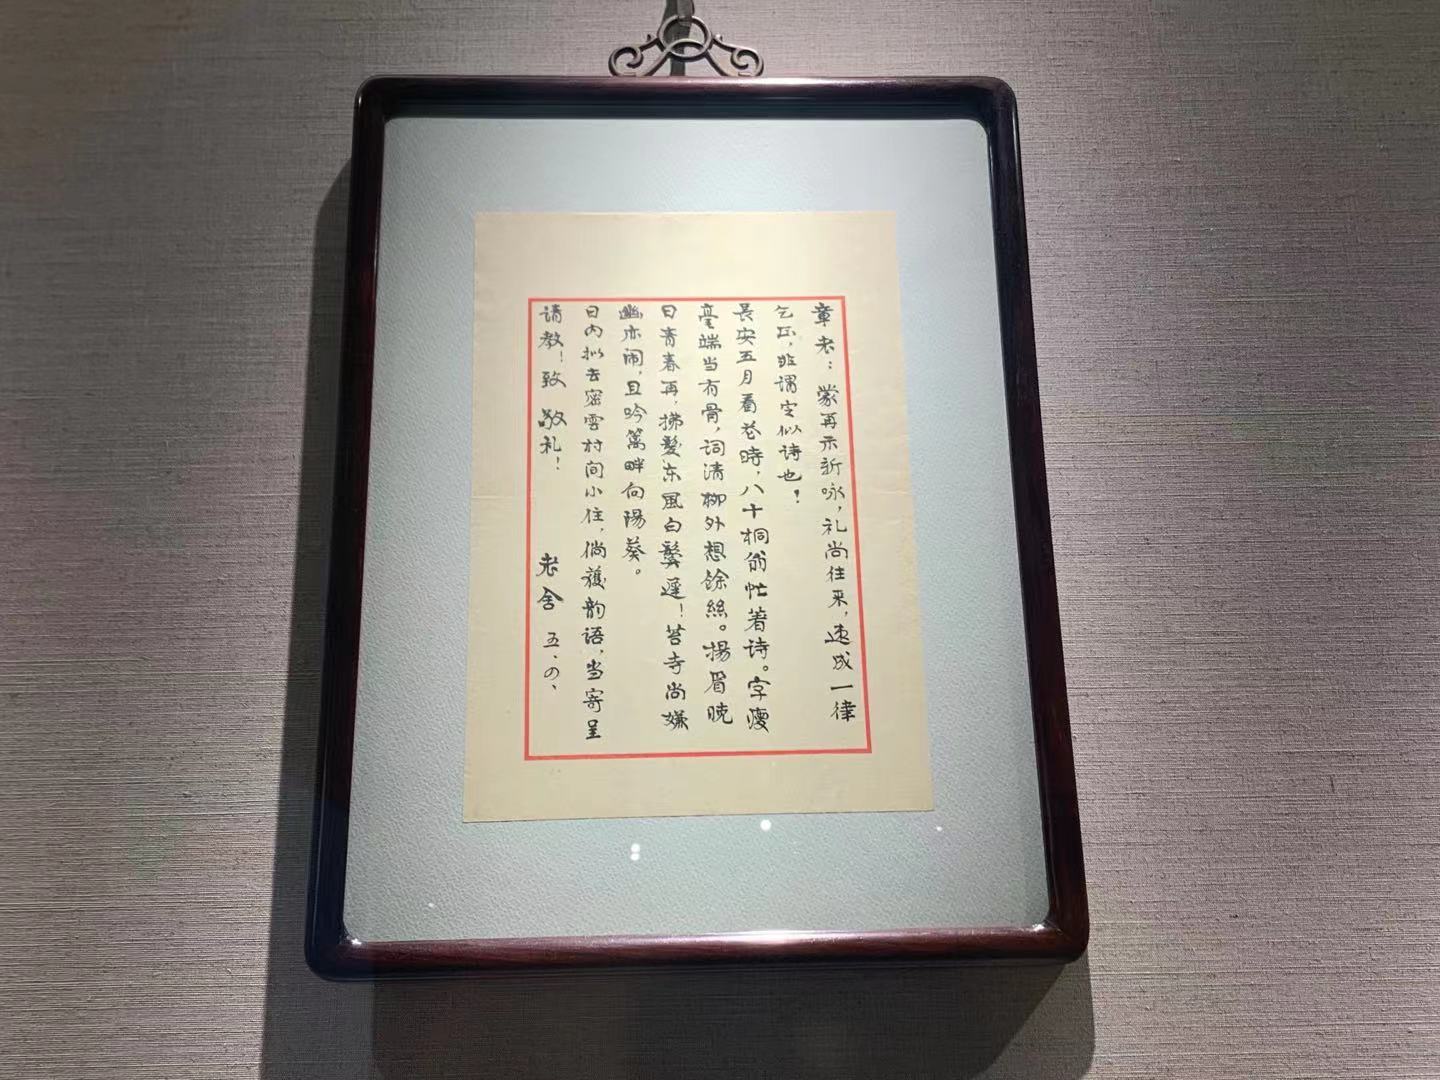 章老：蒙再示新咏，礼尚往来，速成一律
乞正，非谓定似诗也！
长安五月看花時，八十桐翁忙著诗。字瘦
毫端当有骨，词清柳外想餘絲。揚眉晓
日青春再，拂髮东風白鬢遲！苔寺尚嫌
幽亦闹，且吟篱畔向陽葵。
日内拟去密雲村间小住，倘獲韵语，当寄呈
请教！致 敬礼！
老舍 五.四、